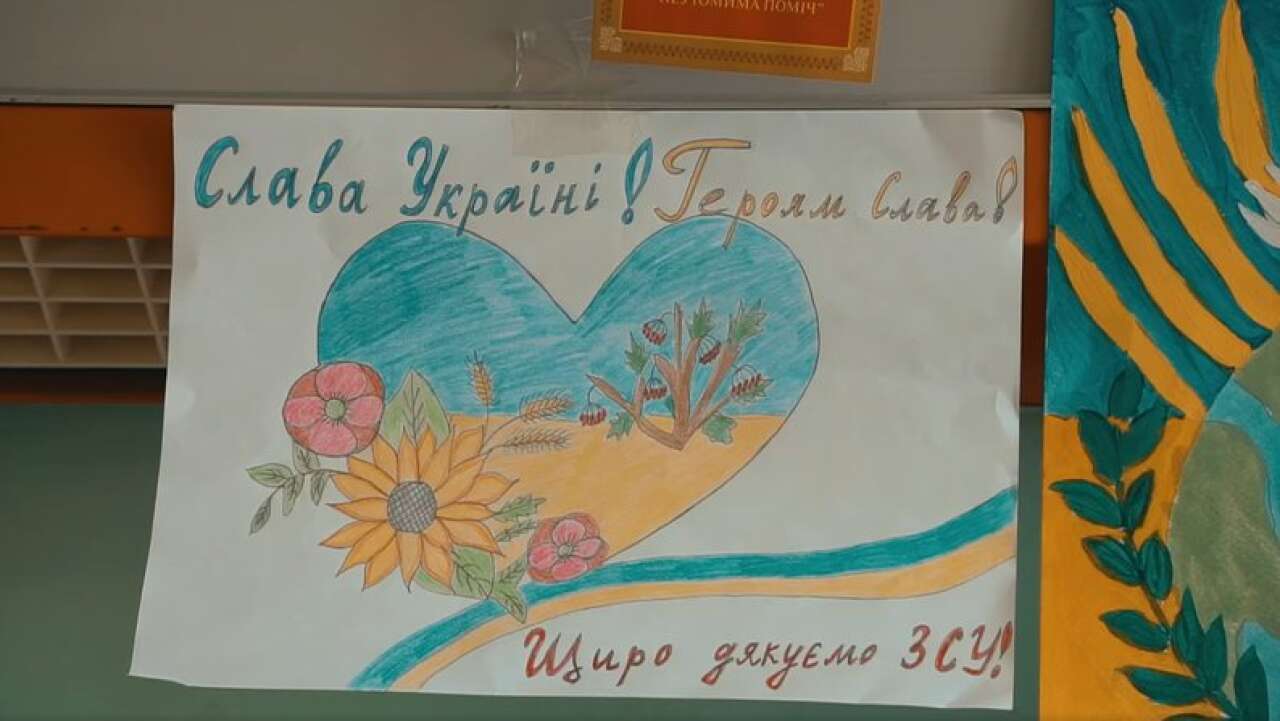 НЕЗЛОМИМА ПОМІЧ"
Слава Україні! Героям Слава!
Щиро дякуємо ЗСУ!